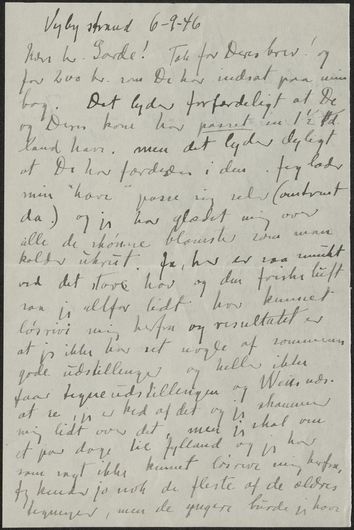 Vejby strand 6-9-46
Kære hr. Torde! Tak for Deres brev! og
for 200 kr. som De har indsat paa min
bog. Det lyder forfærdeligt at De
og Deres kone har passet en 1½ Td
land have. men det lyder dejligt
at De har færdedes i den. Jeg lader
min "have" passe sig selv (omtrent
da) og jeg har glædet mig over
alle de skønne blomster som man
kalder ukrut. Ja, her er saa smukt
ved det store hav og den friske luft
saa jeg altfor lidt har kunnet
løsrive mig herfra og resultatet er
at jeg ikke har set nogle af sommerens
gode udstillinger og heller ikke
faar tegneudstillingen og Weis uds.
at se, jeg er ked af det og jeg skammer
mig lidt over det, men jeg skal om
et par dage til Jylland og jeg har
som sagt ikke kunnet løsrive mig herfra,
Jeg kender jo nok de fleste af de ældres
tegninger, men de yngere burde jeg have